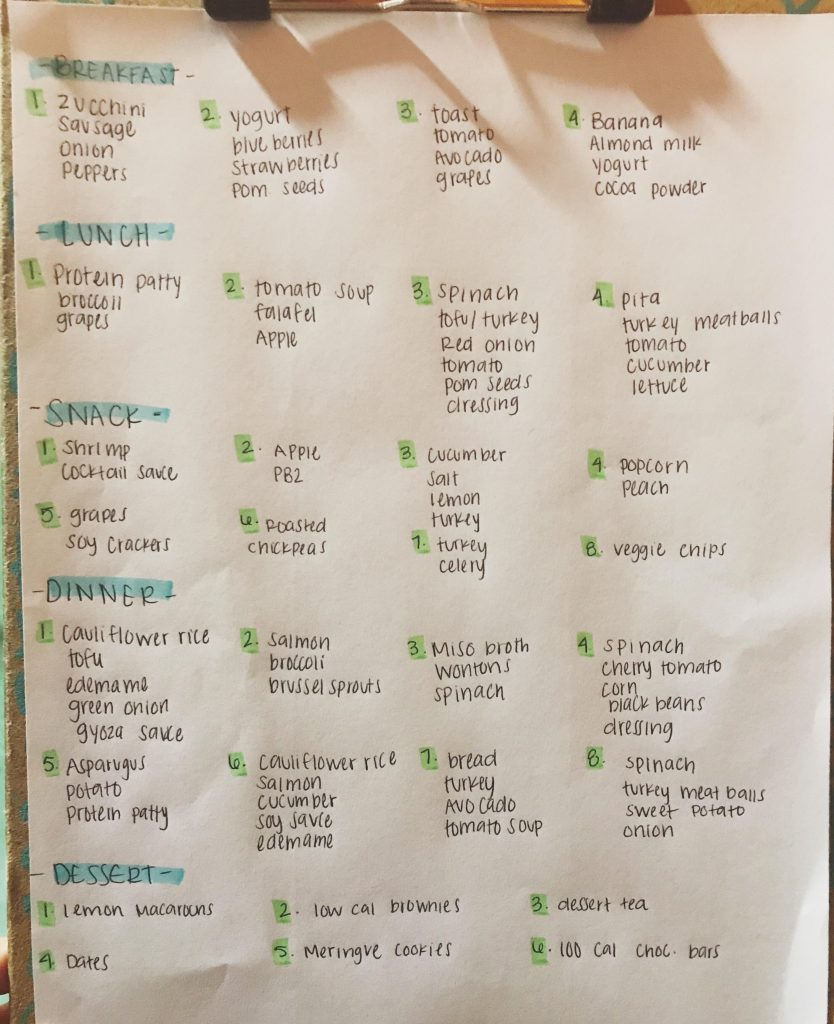 - BREAKFAST -
1. Zucchini
Sausage
Onion
Peppers
2. yogurt
blueberries
Strawberries
Pom seeds
3. toast
tomato
Avocado
grapes
4. Banana
Almond milk
yogurt
cocoa powder
- LUNCH -
1. Protein patty
broccoli
grapes
2. tomato soup
falafel
Apple
3. Spinach
tofu/turkey
Red onion
tomato
pom seeds
dressing
4. Pita
turkey meatballs
tomato
cucumber
lettuce
- SNACK -
1. Shrimp
Cocktail sauce
2. Apple
PB2
3. Cucumber
Salt
lemon
turkey
4. popcorn
peach
5. grapes
soy crackers
6. Roasted
chickpeas
7. turkey
celery
8. veggie chips
- DINNER -
1. Cauliflower rice
tofu
edemame
green onion
gyoza sauce
2. Salmon
broccoli
brussel sprouts
3. Miso broth
wontons
spinach
4. spinach
cherry tomato
corn
black beans
dressing
5. Asparugus
potato
Protein patty
6. Cauliflower rice
Salmon
cucumber
soy sauce
edemame
7. bread
turkey
Avocado
tomato soup
8. spinach
turkey meat balls
sweet potato
onion
- DESSERT -
1. lemon macaroons
2. low cal brownies
3. dessert tea
4. Dates
5. Meringue cookies
6. 100 cal choc. bars